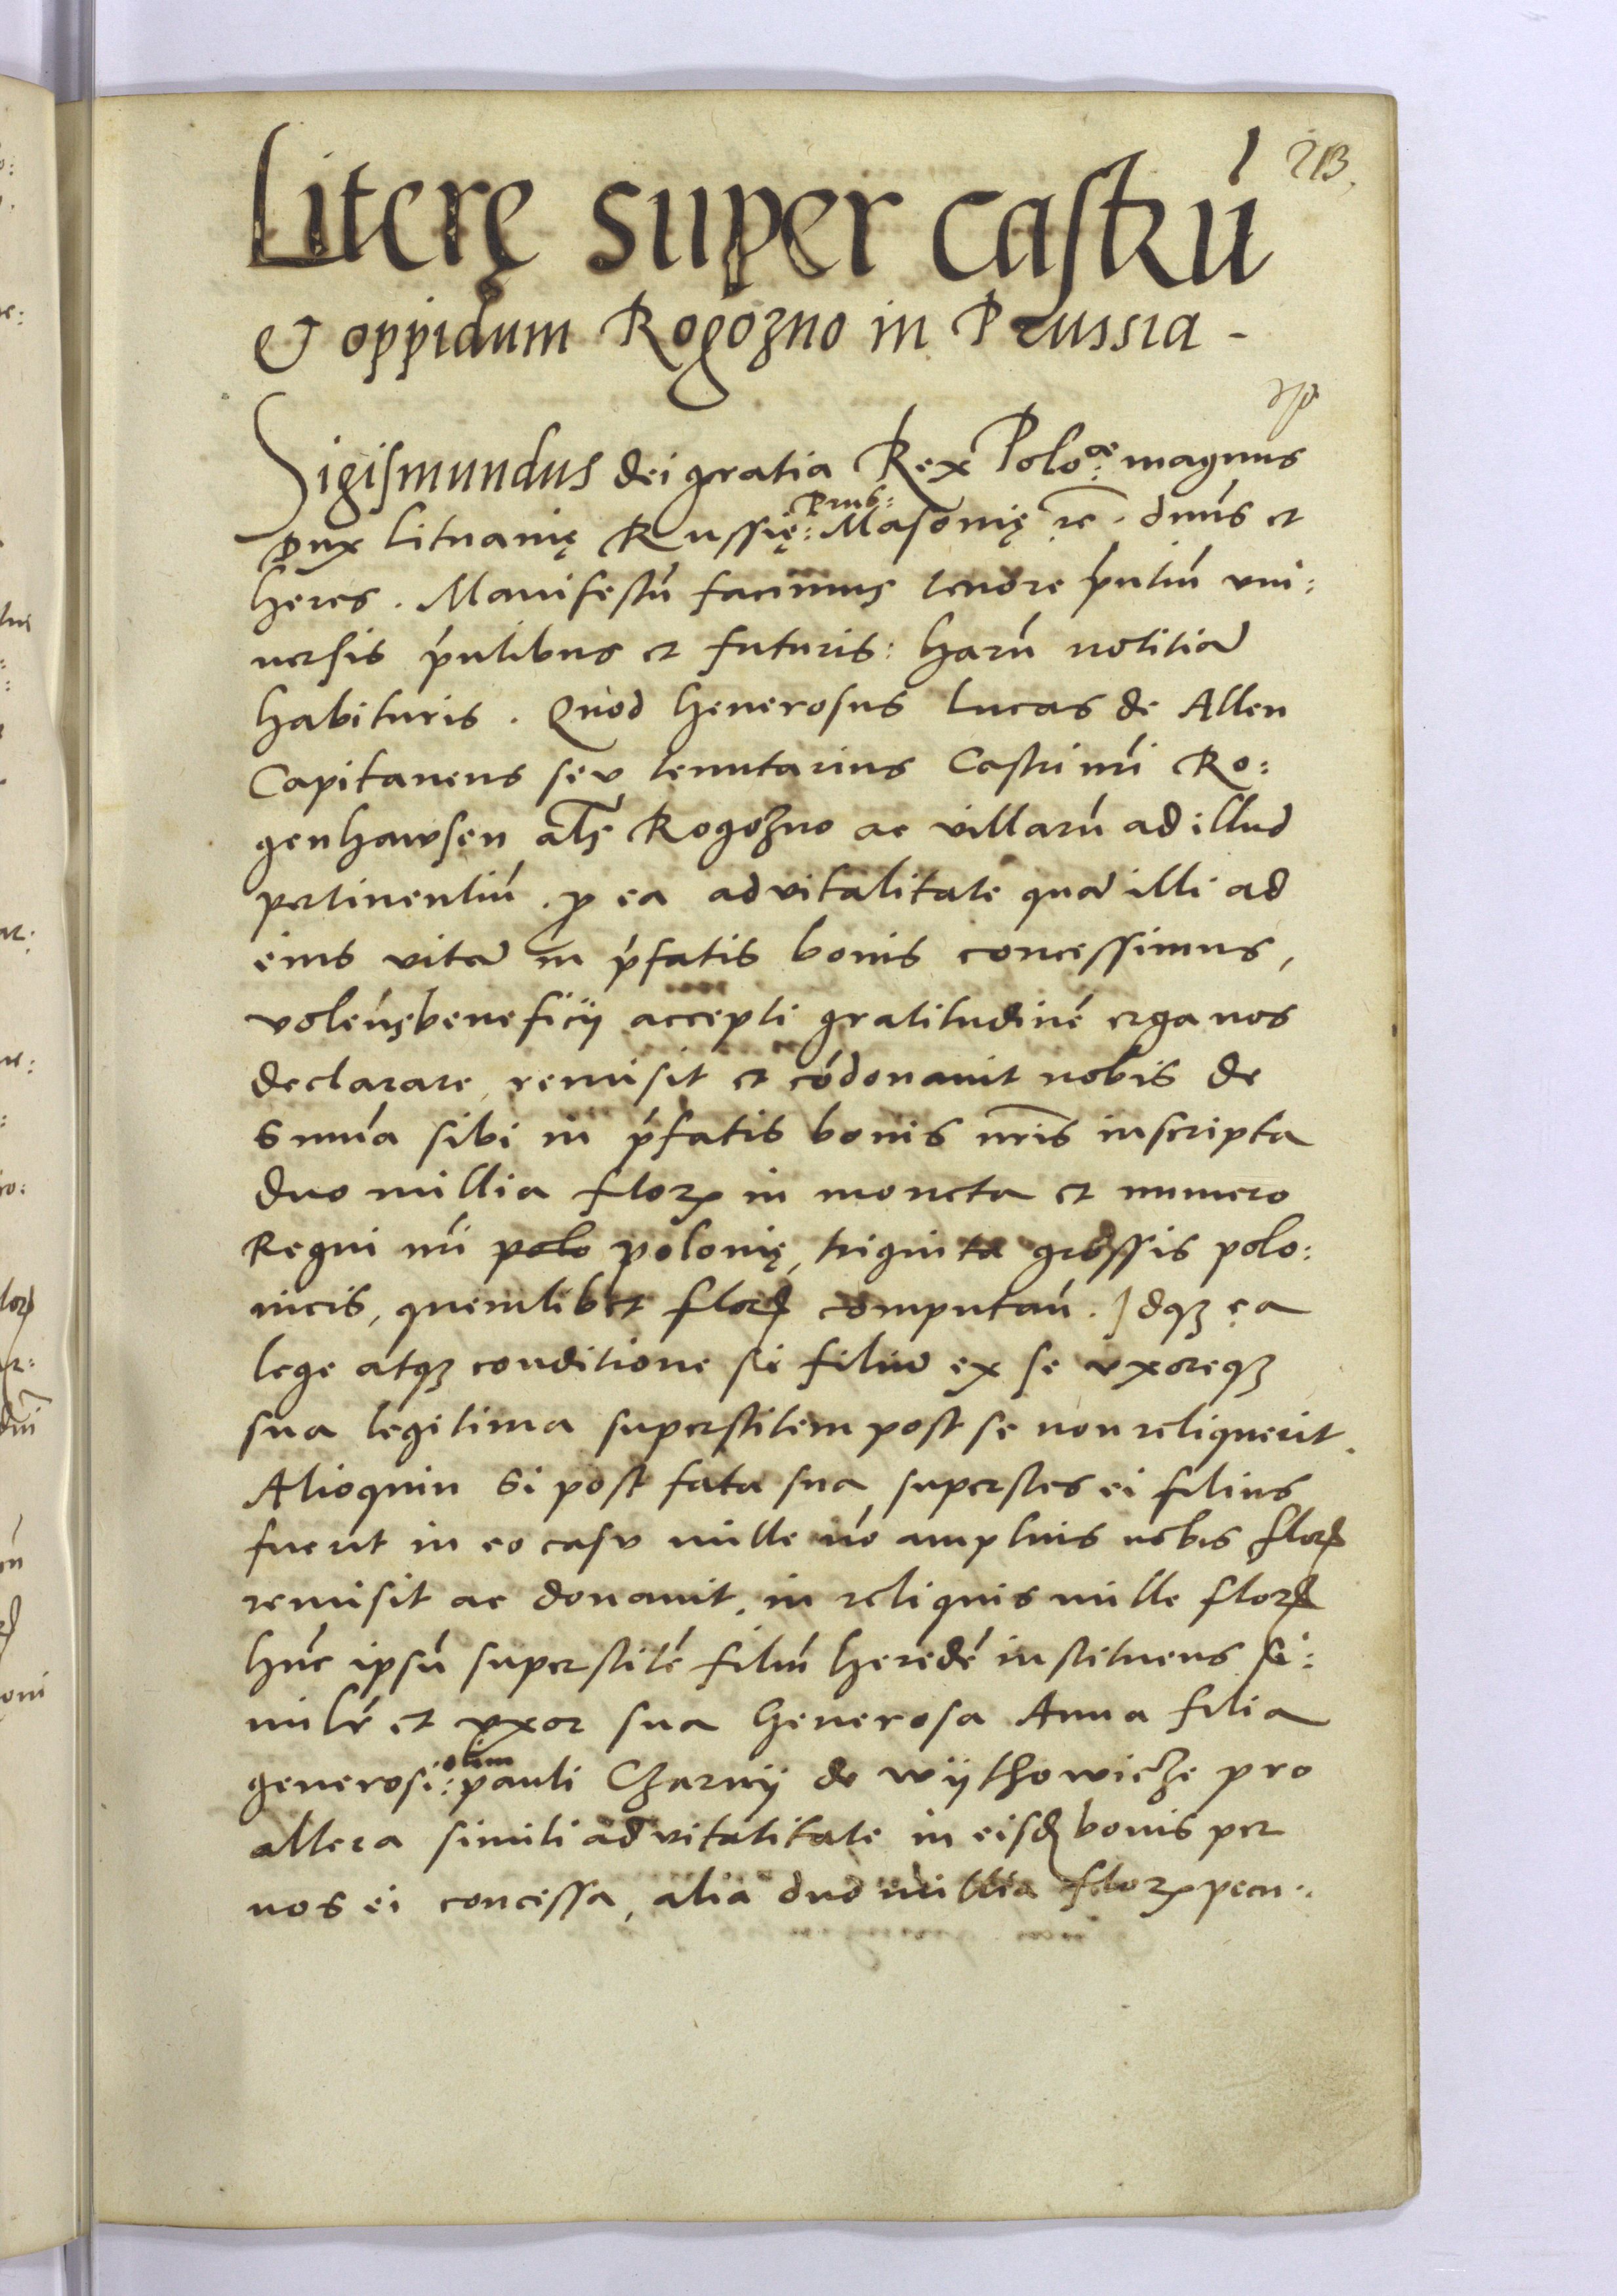 213.
Literę super castrú
& oppidum Rogozno in Prussia -
Sigismundus dei gratia Rex Poloae: magnus
Prus:
Dux Lituanię Russię: Masouię rc̃. dnús et
heres. Manifestú facimus tenore pńtiú vni:
uersis pńtibus et futuris: harú notitiā
habituris. Quod Generosus Lucas de Allen
Capitaneus seu tenutarius Castri nrí Ro:
genhawsen als Rogozno ac villarú ad illud
pertinentiú. p ea aduitalitate quā illi ad
eius vitā in pŕfatis bonis concessimus,
voleńs beneficij accepti gratitudiné erga nos
declarare, remisit et códonauit nobis de
Summá sibi in pŕfatis bonis nr̃is inscripta
duo millia floꝝ in moneta et numero
Regni nrí polo polonię, triginta grossis polo:
nicis, quemlibet floꝝ computań. Idqꝫ ea
lege atqꝫ conditione si filiū ex se vxoreqꝫ
sua legitima superstitem post se non reliquerit.
Alioquin Si post fata sua superstes ei filius
fuerit in eo casu mille nó amplius nobis floꝝ
remisit ac donauit, in reliquis mille floꝝ
húc ipsú superstité filiú heredé instituens si:
milŕ et vxor sua Generosa Anna filia
olim
generosi: pauli Czarnij de wijthowicze pro
altera simili aduitalitate in eisdꝫ bonis per
nos ei concessa, alia duo millia floꝝ pecu: